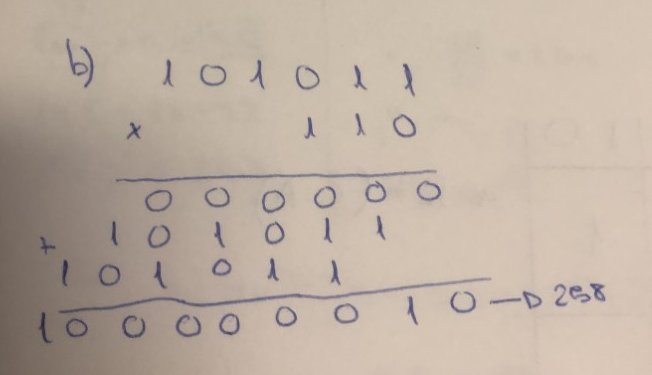 b) 1 0 1 0 1 1
x 1 1 0
0 0 0 0 0 0
+ 1 0 1 0 1 1
1 0 1 0 1 1
1 0 0 0 0 0 0 1 0 → 258